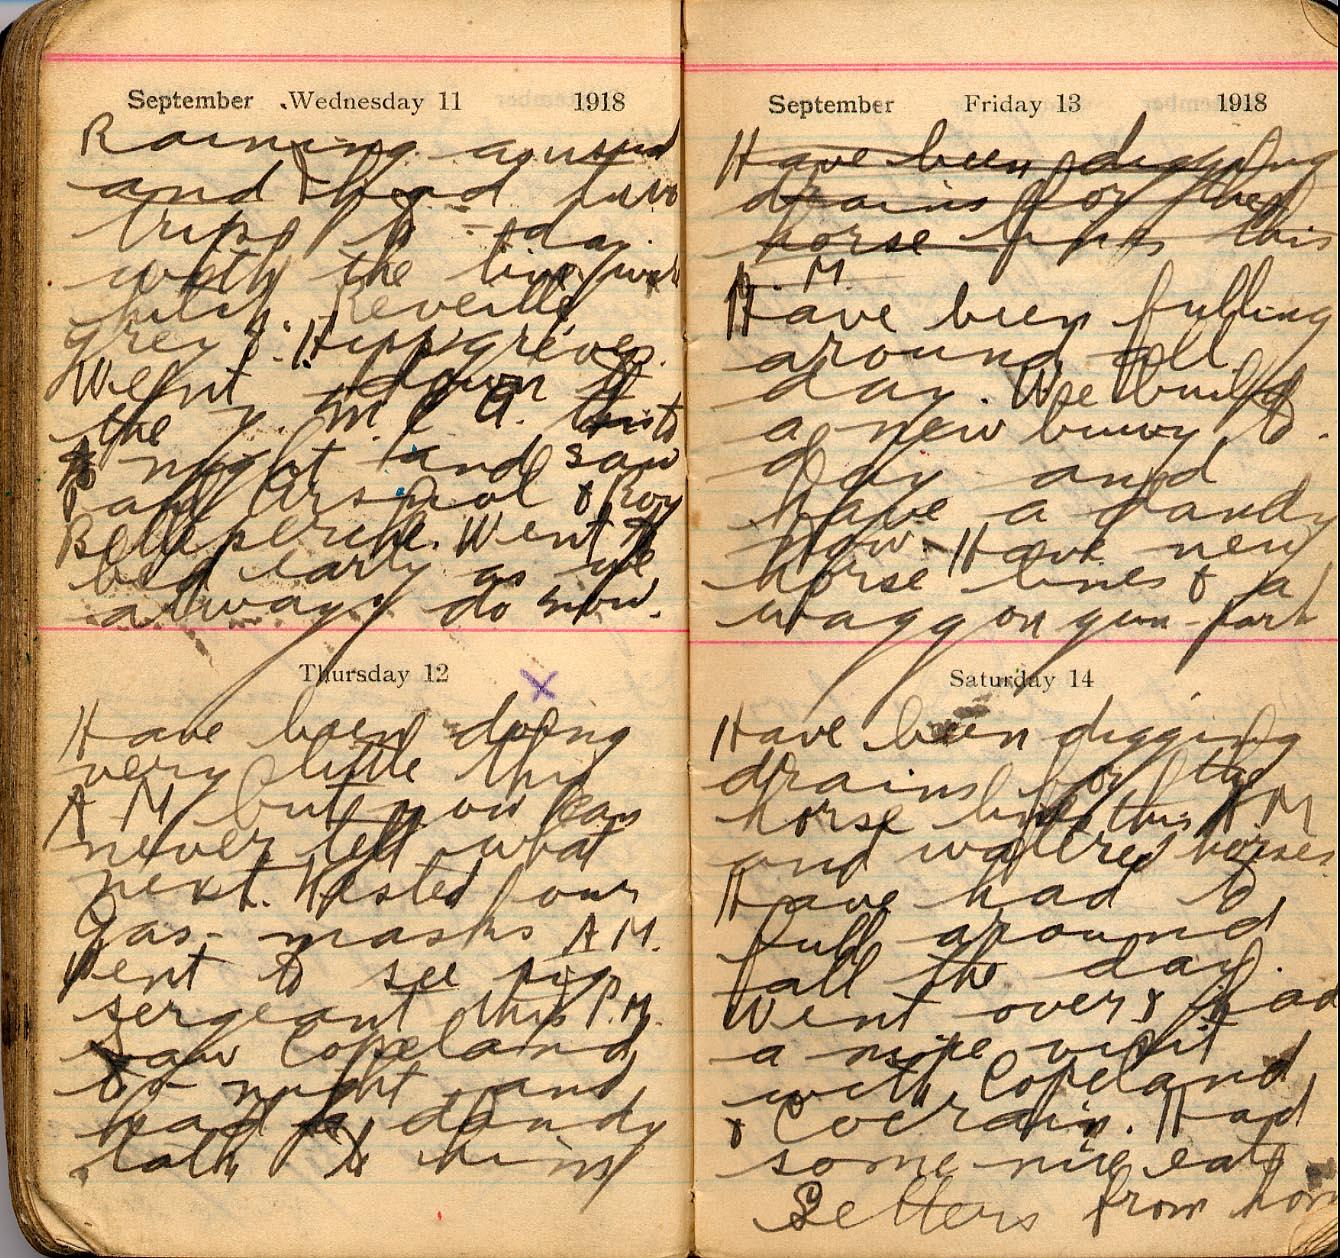 September Wednesday 11 1918
Raining as usual
and had two
trips to-day
with the
hitch. Reveille
grey &
Went down to
the Y. M. C. A.
to night and saw
& Roy
Went to
bed early as we
always do now.
Thursday 12
X
Have been doing
very little this
A M but you can
never tell what
next. Tested our
Gas-masks A M.
Went to see
sergeant this P.M.
Saw Copeland
to-night and
had a dandy
talk to him
September Friday 13 1918
Have been digging
drains for the
horse lines this
A. M.
Have been fulling
around all
day. We build
a new buivy to.
day and
have a dandy
now. Have new
horse lines & a
waggon gun-park
Saturday 14
Have been digging
drains for the
horse lines this A.M
and watered horses
Have had to
full around
all the day.
Went over & had
a nice visit
with Copeland
& Cocrain. Had
some nice eats
Letters from hom